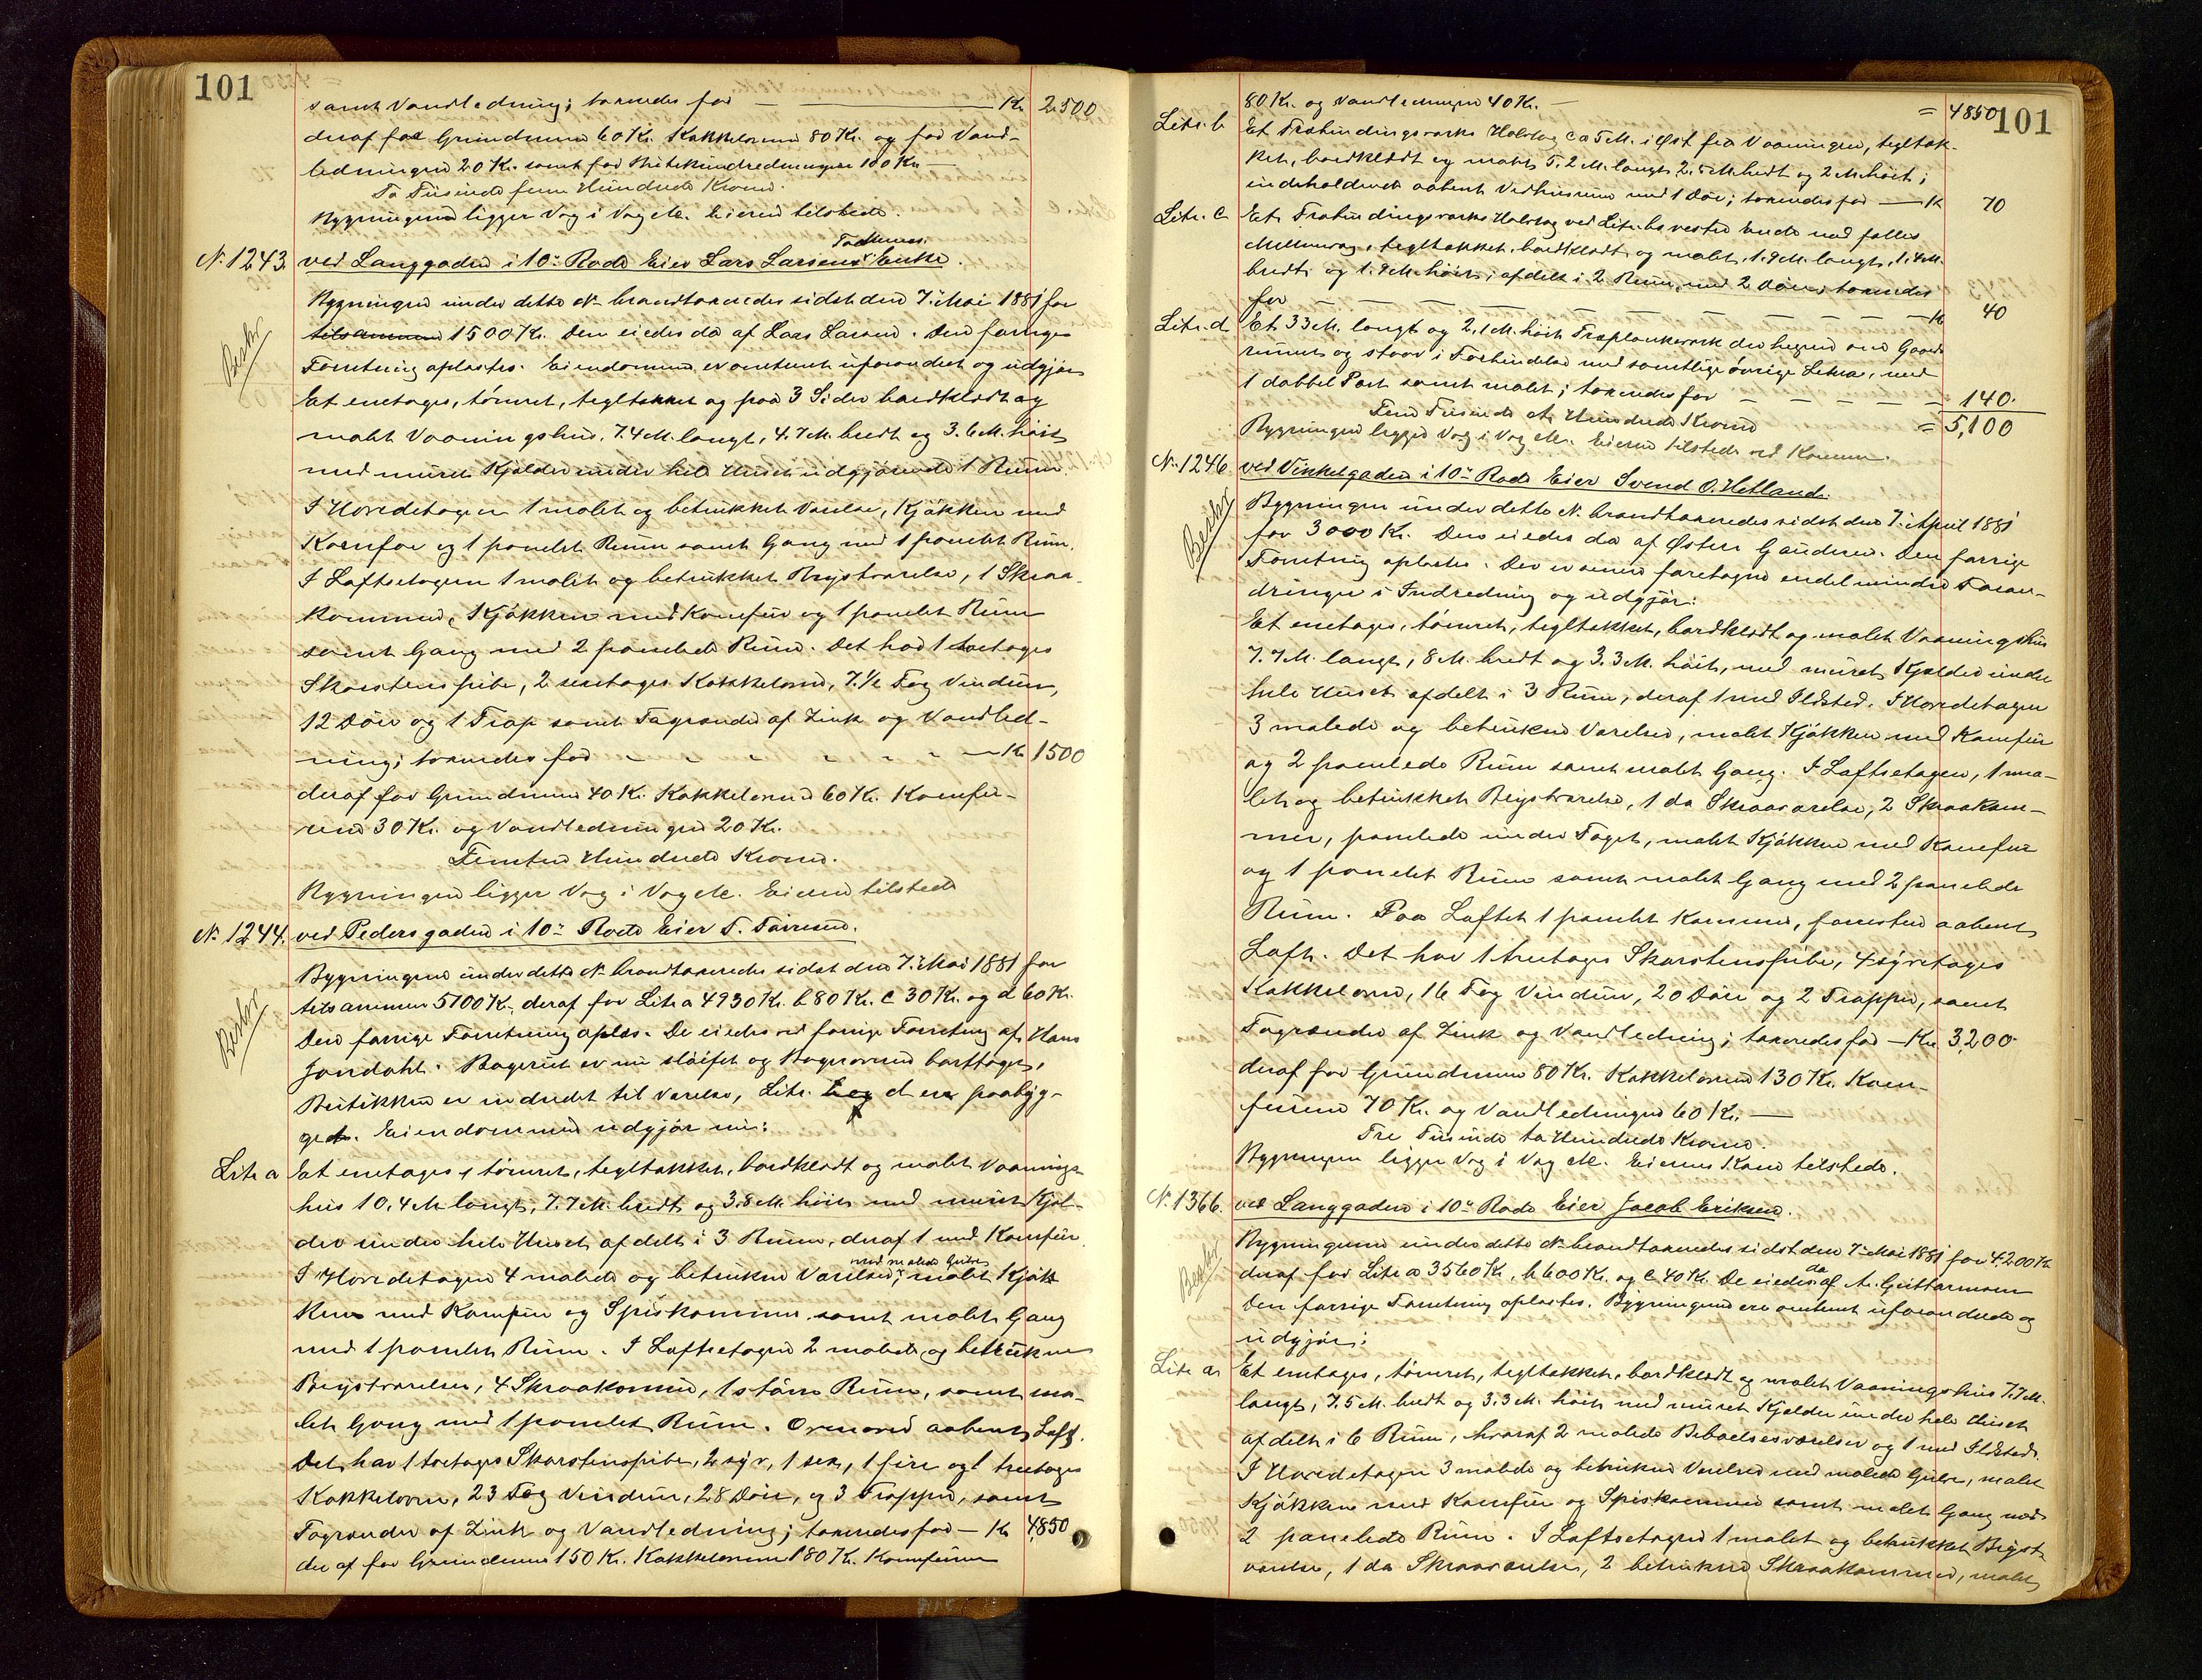 101
samt Vandledning; taxeredes for — Kr. 2500
deraf for Grundmuren 60 Kr. Kakkelovne 80 Kr. og for Vand-
ledningen 20 Kr. samt for Butikindredningen 100 Kr. —
To Tusinde fem Hundrede Kroner.
Bygningen ligger Vag i Vag etc. Eieren tilstede.
Tadnes
N. 1243. ved Langgaden i 10de Rode Eier Lars Larsens Enke.
Bygningen under dette No brandtaxeredes sidst den 7de Mai 1881 for
Besbr
tilsammen 1500 Kr. Den eiedes da af Lars Larsen. Den forrige
Forretning oplæstes. Eiendommen er omtrent uforandret og udgjør
Et enetages, tømret, tegltækket og paa 3 Sider bordklædt og
malet Vaaningshus, 7.4 M. langt, 4.7 M. bredt og 3.6 M. høit
med muret Kjælder under hele Huset udgjørende 1 Rum.
I Hovedetagen 1 malet og betrukket Værelse, Kjøkken med
Komfur og 1 panelet Rum samt Gang med 1 panelet Rum.
I Loftsetagen 1 malet og betrukket Brystværelse, 1 Skraa-
kammer, Kjøkken med Komfur og 1 panelet Rum
samt Gang med 2 panelede Rum. Det har 1 toetages
Skorstenspibe, 2 enetages Kakkelovne, 7 1/2 Fag Vinduer,
12 Døre og 1 Trap samt Tagrender af Zink og Vandled-
ning; taxeredes for — Kr. 1500
deraf for Grundmuren 40 Kr. Kakkelovnene 60 Kr. Komfu-
rene 30 Kr. og Vandledningen 20 Kr.
Femten Hundrede Kroner.
Bygningen ligger Vag i Vag etc. Eieren tilstede
N. 1244. ved Pedersgaden i 10de Rode Eier T. Tørresen.
Bygningene under dette No brandtaxeredes sidst den 7de Mai 1881 for
tilsammen 5100 Kr. deraf for Litr a 4930 Kr. b 80 Kr. c 30 Kr. og d 60 Kr.
Besbr
Den forrige Forretning oplæs. De eiedes ved forrige Forretning af Hans
Jondahl. Bageriet er nu sløifet og Bagerovnen borttaget.
Butikken er indredet til Værelse, Litr. c og d ere paabyg-
get. Eiendommen udgjør nu:
Litr a Et enetages, tømret, tegltækket, bordklædt og malet Vaanings-
hus 10.4 M langt, 7.7 M. bredt og 3.8 M. høit med muret Kjæl-
der under hele Huset afdelt i 3 Rum, deraf 1 med Komfur.
med malede Gulve
I Hovedetagen 4 malede og betrukne Værelser, malet Kjøk-
ken med Komfur og Spiskammer samt malet Gang
med 1 panelet Rum. I Loftsetagen 2 malede og betrukne
Brystværelser, 4 Skraakammer, 1 større Rum, samt ma-
let Gang med 1 panelet Rum. Ovenover aabent Loft.
Det har 1 toetages Skorstenspibe, 2 syv, 1 sex, 1 fire og 1 treetages
Kakkelovne, 23 Fag Vinduer, 28 Døre, og 3 Trapper, samt
Tagrender af Zink og Vandledning; taxeredes for — Kr. 4,850
der af for Grundmuren 150 Kr. Kakkelovnene 180 Kr. Komfurene
101
80 Kr. og Vandledningen 40 Kr. — = 4850
Litr. b Et Træbindingsværks Halvtag ca 5 M. i Øst fra Vaaningen, tegltæk-
ket, bordklædt og malet, 5.2 M. langt, 2.5 M. bredt og 2 M. høit;
indeholdende aabent Vedhusrum med 1 Dør; taxeredes for — Kr 70
Litr. c Et Træbindingsværks Halvtag ved Litr. bs vestre Ende med fælles
Mellemvæg, tegltækket, bordklædt og malet, 1.9 M. langt, 1.4 M.
bredt og 1.9 M. høit; afdelt i 2 Rum med 2 Døre; taxeredes
for — Kr 40
Litr. d Et 33 M. langt og 2.1 M. høit Træplankeværk der hegner om Gaards-
rummet og staar i Forbindelse med samtlige øvrige Litra, med
1 dobbel Port samt malet; taxeredes for — 140.
Fem Tusinde et Hundrede Kroner = 5,100
Bygningen ligger Vag i Vag etc. Eieren tilstede ved Konen.
N. 1246. ved Vinkelgaden i 10de Rode Eier Svend O. Hetland.
Bygningen under dette No brandtaxeredes sidst den 7de April 1881
Besbr
for 3000 Kr. Den eiedes da af Østen Gundersen. Den forrige
Forretning oplæstes. Der er senere foretaget endel mindre Foran-
dringer i Indredning og udgjør:
Et enetages, tømret, tegltækket, bordklædt og malet Vaaningshus
7.7 M. langt, 8 M. bredt og 3.3 M. høit, med muret Kjælder under
hele Huset afdelt i 3 Rum, deraf 1 med Ildsted. I Hovedetagen
3 malede og betrukne Værelser, malet Kjøkken med Komfur
og 2 panelede Rum samt malet Gang. I Loftsetagen, 1 ma-
let og betrukket Brystværelse, 1 do Skraaværelse, 2 Skraakam-
mer, panelede under Taget, malet Kjøkken med Komfur
og 1 panelet Rum samt malet Gang med 2 panelede
Rum. Paa Loftet 1 panelet Kammer, forresten aabent
Loft. Det har 1 treetages Skorstenspibe, 4 syvetages
Kakkelovne, 16 Fag Vinduer, 20 Døre og 2 Trapper, samt
Tagrender af Zink og Vandledning; taxeredes for — Kr. 3,200
deraf for Grundmuren 80 Kr. Kakkelovnene 130 Kr. Kom-
furene 70 Kr. og Vandledningen 60 Kr. —
Tre Tusinde to Hundrede Kroner.
Bygningen ligger Vag i Vag etc. Eierens Kone tilstede.
N. 1366. ved Langgaden i 10de Rode Eier Jacob Eriksen.
Bygningerne under dette No brandtaxeredes sidst den 7de Mai 1881 for 4200 Kr
Besbr
da
deraf for Litr a 3560 Kr, b 600 Kr. og c 40 Kr. De eiedes af A. Guttormsen
Den forrige Forretning oplæstes. Bygningerne ere omtrent uforandrede og
udgjør:
Litr a, Et enetages, tømret, tegltækket, bordklædt og malet Vaaningshus 7.7 M.
langt, 7.5 M. bredt og 3.3 M. høit med muret Kjælder under hele Huset
afdelt i 6 Rum, hvoraf 2 malede Beboelsesværelser og 1 med Ildsted.
I Hovedetagen 3 malede og betrukne Værelser med malede Gulve, malet
Kjøkken med Komfur og Spiskammer samt malet Gang med
2 panelede Rum. I Loftsetagen 1 malet og betrukket Bryst-
værelse, 1 do Skraaværelse, 2 betrukne Skraakammer, malet